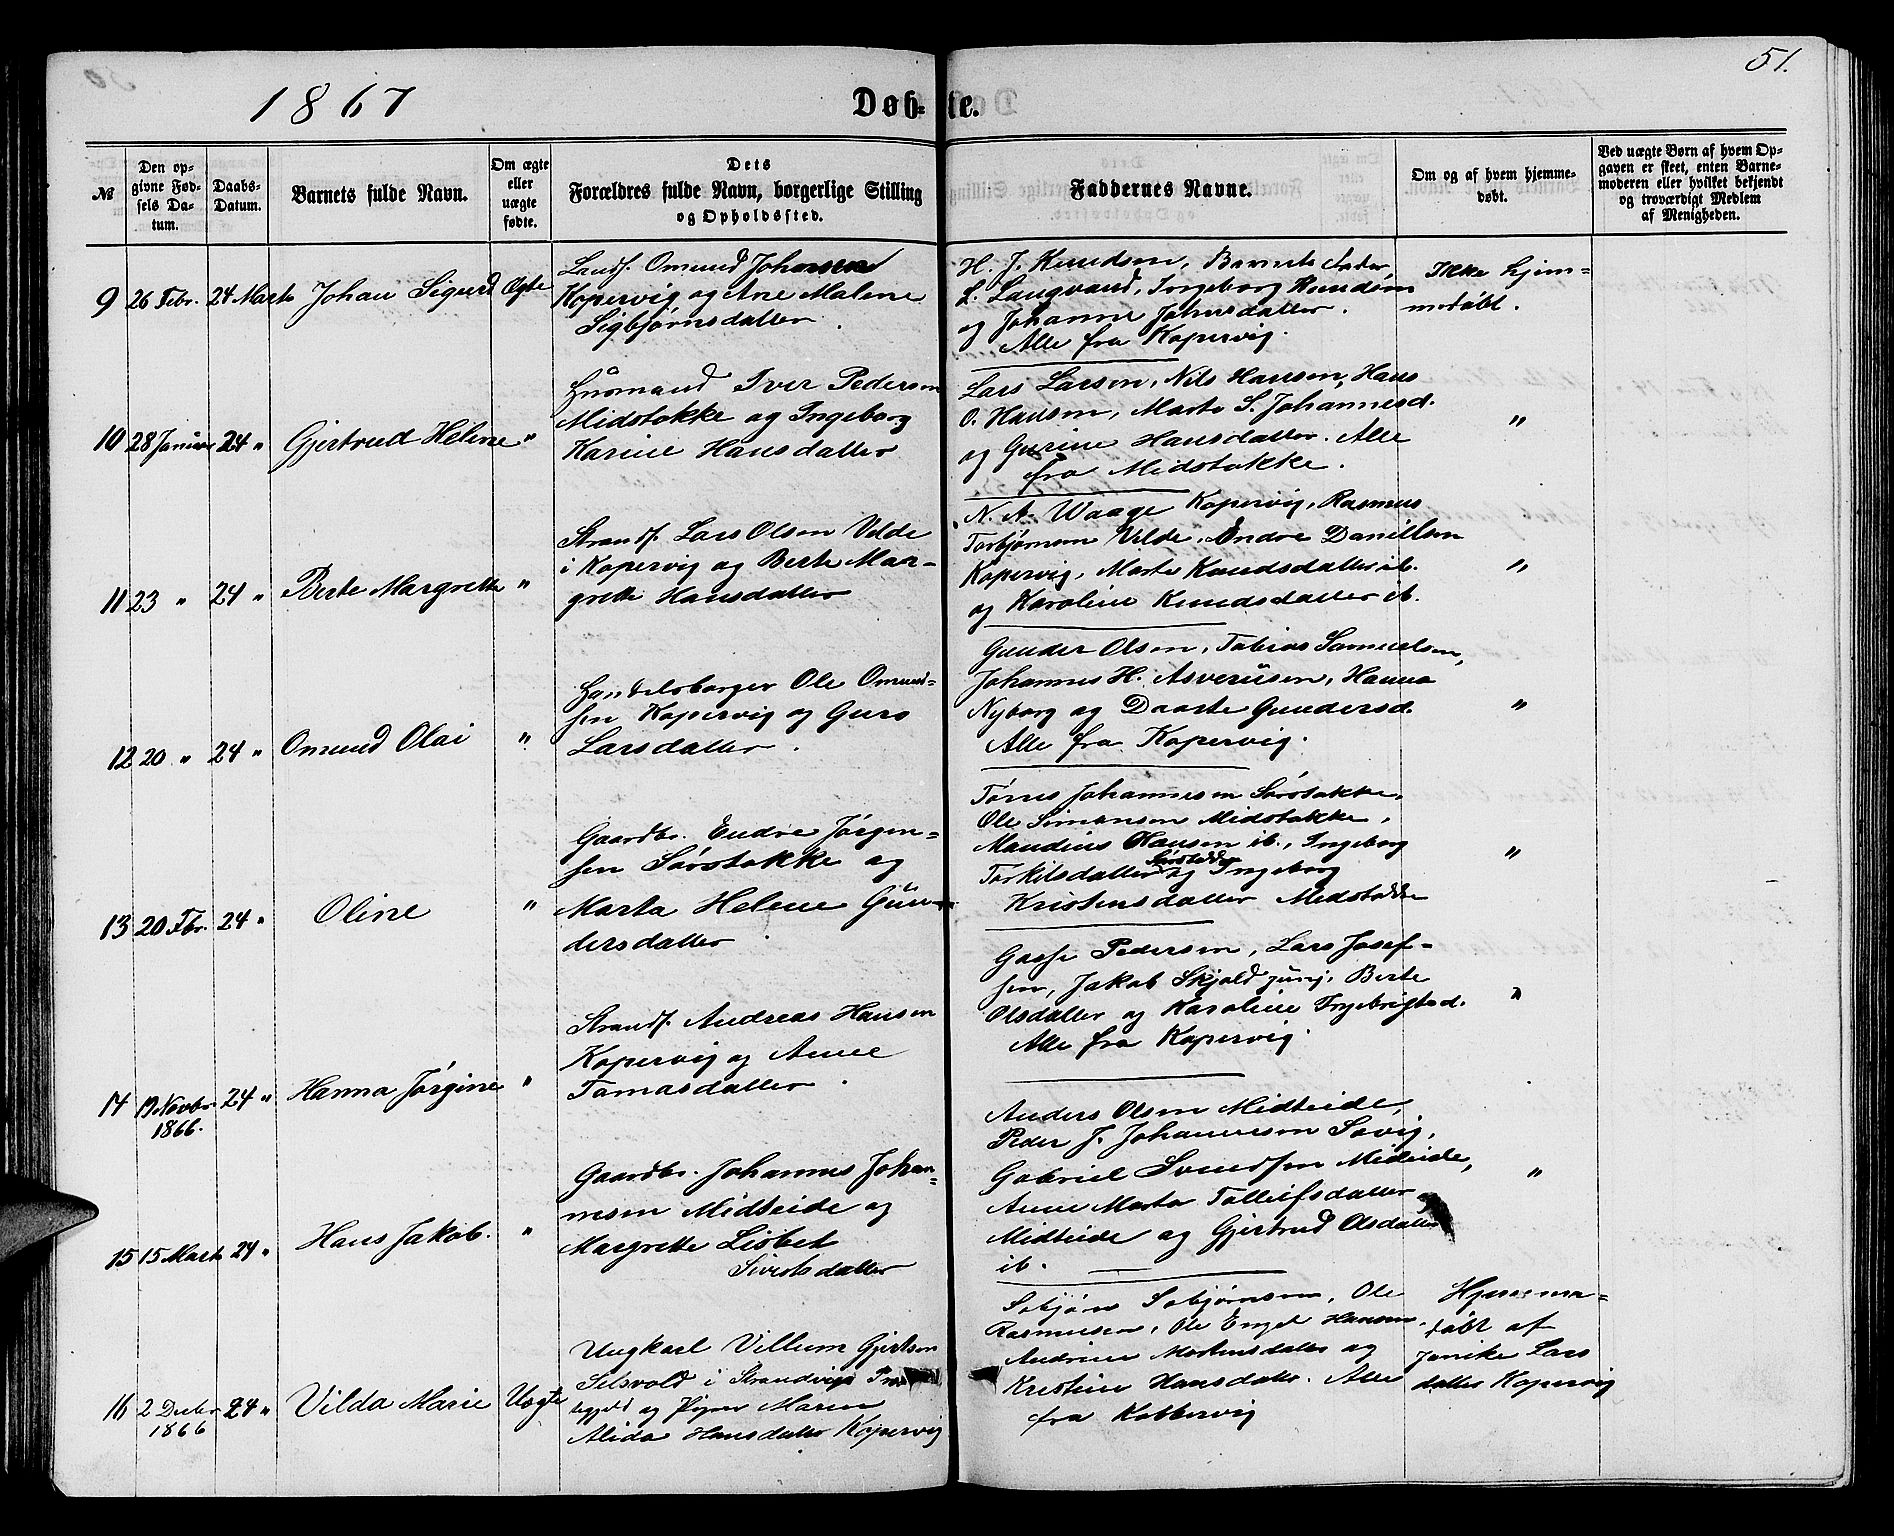 51.
1867
Døb-te.
№
Den op-
givne Fød-
sels Da-
tum.
Daabs-
Datum.
Barnets fulde Navn.
Om ægte
eller
uægte
fødte.
Dets
Forældres fulde Navn, borgerlige Stilling
og Opholdssted.
Faddernes Navne.
Om og af hvem hjemme-
døbt.
Ved uægte Børn af hvem Op-
gaven er skeet, enten Barne-
moderen eller hvilket bekjendt
og troværdigt Medlem
af Menigheden.
9 26 Febr. 24 Marts Johan Sigurd Ægte
Omund Johansen
Kopervig og Ane Malene
Sigbjørnsdatter.
H. J. Knudsen, Barnets Fader,
L. Langvand, Ingeborg Knudsen
og Johanne Johnsdatter.
Alle fra Kopervig.
Ikke hjem-
medøbt.
10 28 Januar 24 " Gjertrud Helene "
Husmand Iver Pedersen
Midstokke og Ingeborg
Karine Hansdatter
Lars Larsen, Nils Hansen, Hans
O. Hansen, Marta S. Johannesd.
og Gurine Hansdatter. Alle
fra Midstokke.
"
11 23 " 24 " Berte Margrette "
Strands. Lars Olsen Velde
i Kopervig og Berte Mar-
grette Hansdatter
N. A. Waage Kopervig, Rasmus
Torbjørnsen Velde, Endre Danielsen
Kopervig, Marte Knudsdatter ib.
og Karoline Knudsdatter ib.
"
12 20 " 24 " Omund Olai "
Handelsborger Ole Omund-
sen Kopervig og Guro
Larsdatter.
Gunder Olsen, Tobias Samuelsen,
Johannes H. Asverusen, Hanna
Nyborg og Daarte Gundersd.
Alle fra Kopervig.
"
13 20 Fbr. 24 " Oline "
Gaardbr. Endre Jørgen-
sen Sørstokke og
Marta Helene Gun-
dersdatter.
Tørres Johannesen Sørstokke,
Ole Simonsen Midstokke,
Maudius Hansen ib., Ingeborg
Torkilsdatter Sørstokke og Ingeborg
Kristensdatter Midstokke
"
14 19 Novbr. 24 " Hanna Jørgine "
1866.
Strands. Andreas Hansen
Kopervig og Anne
Tomasdatter.
Gosse Pedersen, Lars Josef-
sen, Jakob Skjold junj, Berte
Olsdatter og Karoline Ingebrigtsd.
Alle fra Kopervig.
"
15 15 Marts 24 " Hans Jakob. "
Gaardbr. Johannes Johan-
nesen Midteide og
Margrette Lisbet
Sivertsdatter
Anders Olsen Midteide,
Peder J. Johannesen Sævig,
Gabriel Svendsen Mideide,
Anne Marta Tolleifsdatter
Midteide og Gjertrud Olsdatter
ib.
"
16 2 Decbr. 24 " Vilda Marie Uægte
1866
Ungkarl Villum Gjertsen
Selsvold i Strandvigs
og Pigen Maren
Alida Hansdatter Kopervig
Sebjørn Sebjørnsen, Ole
Rasmussen, Ole Engel Hansen,
Andrine Mortensdatter og
Kristine Hansdatter. Alle
fra Kobbervig
Hjemme-
døbt af
Janike Lars
datter Kopervig